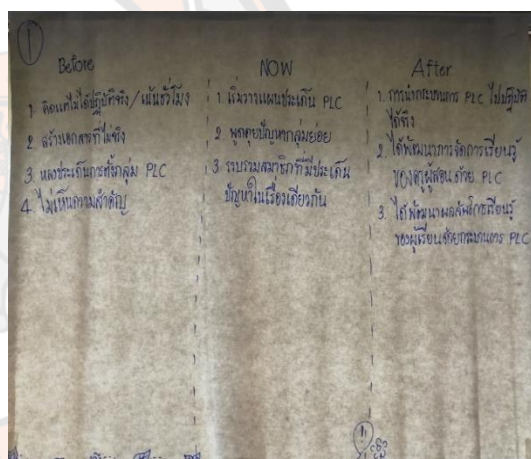 1
Before
1. คิดแต่ไม่ได้ปฏิบัติจริง/เน้นชั่วโมง
2. สร้างเอกสารที่ไม่จริง
3. หลงประเด็นการตั้งกลุ่ม PLC
4. ไม่เห็นความสำคัญ
NOW
1. เริ่มวางแผนประเด็น PLC
2. พูดคุยปัญหากลุ่มย่อย
3. รวบรวมสมาชิกที่มีประเด็น
ปัญหาในเรื่องเดียวกัน
After
1. การนำกระบวนการ PLC ไปปฏิบัติ
ได้จริง
2. ได้พัฒนาการจัดการเรียนรู้
ของครูผู้สอนด้วย PLC
3. ได้พัฒนาผลสัมฤทธิ์การเรียนรู้
ของผู้เรียนด้วยกระบวนการ PLC